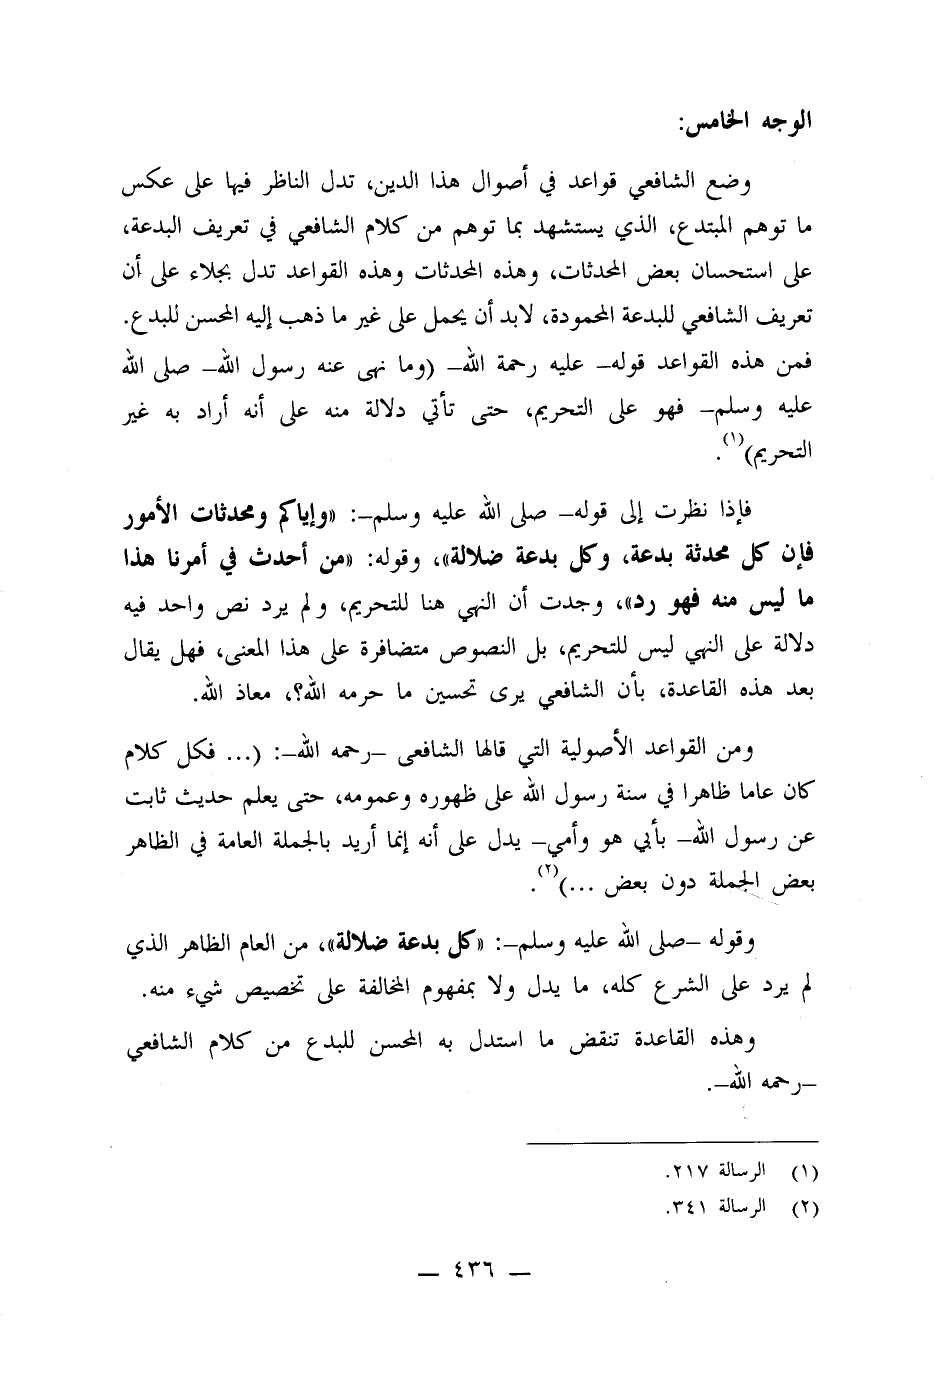 الوجه الخامس:
وضع الشافعي قواعد في أصوال هذا الدين، تدل الناظر فيها على عكس
ما توهم المبتدع، الذي يستشهد بما توهم من كلام الشافعي في تعريف البدعة،
على استحسان بعض المحدثات، وهذه المحدثات وهذه القواعد تدل بجلاء على أن
تعريف الشافعي للبدعة المحمودة، لابد أن يحمل على غير ما ذهب إليه المحسن للبدع.
فمن هذه القواعد قوله– عليه رحمة الله– (وما نهى عنه رسول الله– صلى الله
عليه وسلم– فهو على التحريم، حتى تأتي دلالة منه على أنه أراد به غير
التحريم)(١).
فإذا نظرت إلى قوله– صلى الله عليه وسلم–: «وإياكم ومحدثات الأمور
فإن كل محدثة بدعة، وكل بدعة ضلالة»، وقوله: «من أحدث في أمرنا هذا
ما ليس منه فهو رد»، وجدت أن النهي هنا للتحريم، ولم يرد نص واحد فيه
دلالة على النهي ليس للتحريم، بل النصوص متضافرة على هذا المعنى، فهل يقال
بعد هذه القاعدة، بأن الشافعي يرى تحسين ما حرمه الله؟، معاذ الله.
ومن القواعد الأصولية التي قالها الشافعى –رحمه الله–: (... فكل كلام
كان عاما ظاهرا في سنة رسول الله على ظهوره وعمومه، حتى يعلم حديث ثابت
عن رسول الله– بأبي هو وأمي– يدل على أنه إنما أريد بالجملة العامة في الظاهر
بعض الجملة دون بعض ...)(٢).
وقوله –صلى الله عليه وسلم–: «كل بدعة ضلالة»، من العام الظاهر الذي
لم يرد على الشرع كله، ما يدل ولا بمفهوم المخالفة على تخصيص شيء منه.
وهذه القاعدة تنقض ما استدل به المحسن للبدع من كلام الشافعي
–رحمه الله–.
(١) الرسالة ٢١٧.
(٢) الرسالة ٣٤١.
– ٤٣٦ –